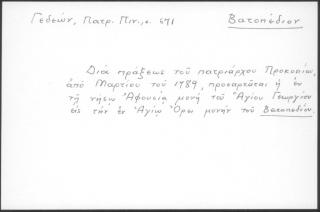 Γεδεών, Πατρ. Πιν., σ. 671
Βατοπέδιον
Διά πράξεως τοῦ πατριάρχου Προκοπίου,
ἀπό Μαρτίου τοῦ 1789, προσαρτᾶται ἡ ἐν
τῇ νήσῳ Ἀφουσίᾳ μονή τοῦ Ἁγίου Γεωργίου
εἰς τήν ἐν Ἁγίῳ Ὄρω μονήν τοῦ Βατοπεδίου.